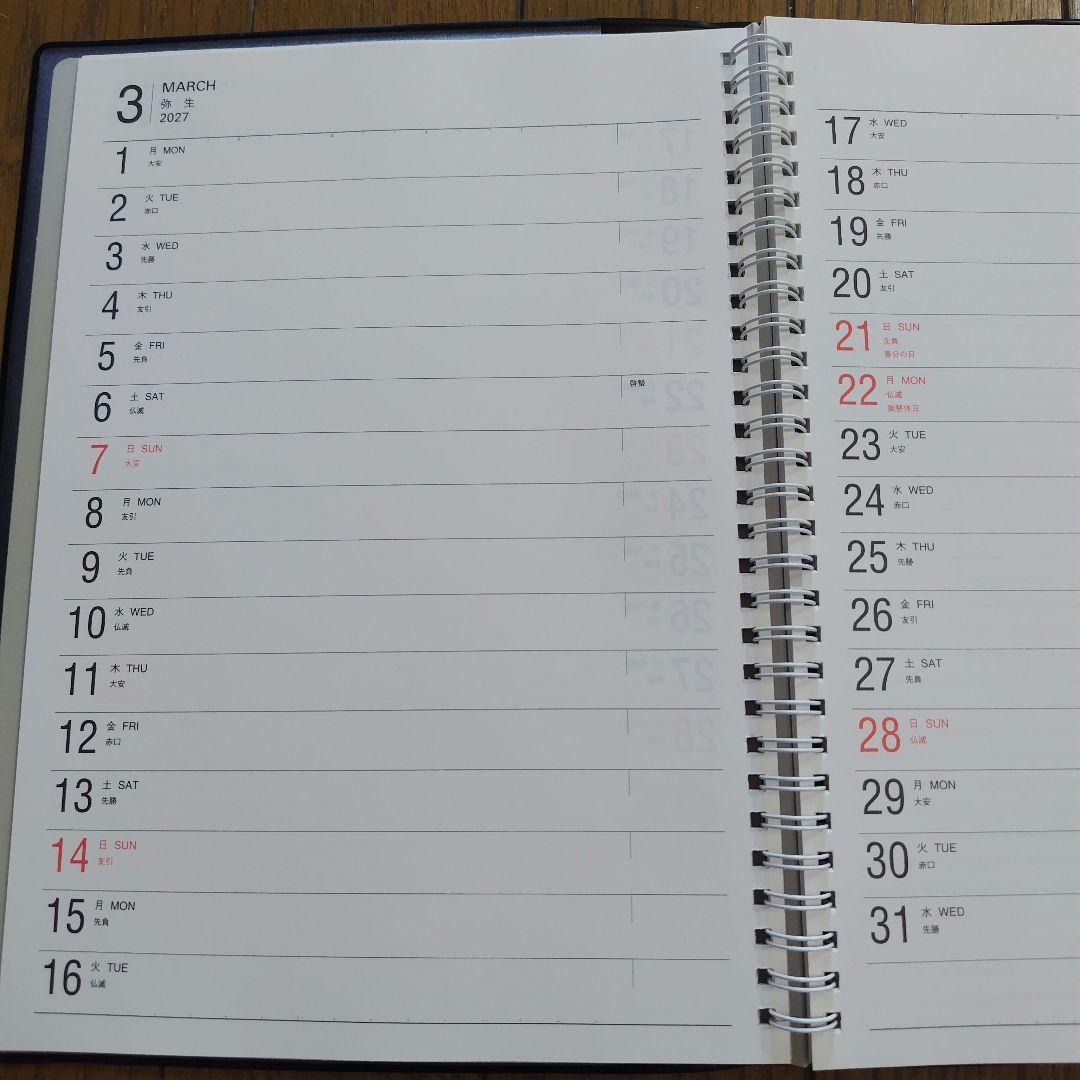 3 MARCH
弥 生
2027
1 月 MON
大安
2 火 TUE
赤口
3 水 WED
先勝
4 木 THU
友引
5 金 FRI
先負
6 土 SAT
仏滅
啓蟄
7 日 SUN
大安
8 月 MON
友引
9 火 TUE
先負
10 水 WED
仏滅
11 木 THU
大安
12 金 FRI
赤口
13 土 SAT
先勝
14 日 SUN
友引
15 月 MON
先負
16 火 TUE
仏滅
17 水 WED
大安
18 木 THU
赤口
19 金 FRI
先勝
20 土 SAT
友引
21 日 SUN
先負
春分の日
22 月 MON
仏滅
振替休日
23 火 TUE
大安
24 水 WED
赤口
25 木 THU
先勝
26 金 FRI
友引
27 土 SAT
先負
28 日 SUN
仏滅
29 月 MON
大安
30 火 TUE
赤口
31 水 WED
先勝